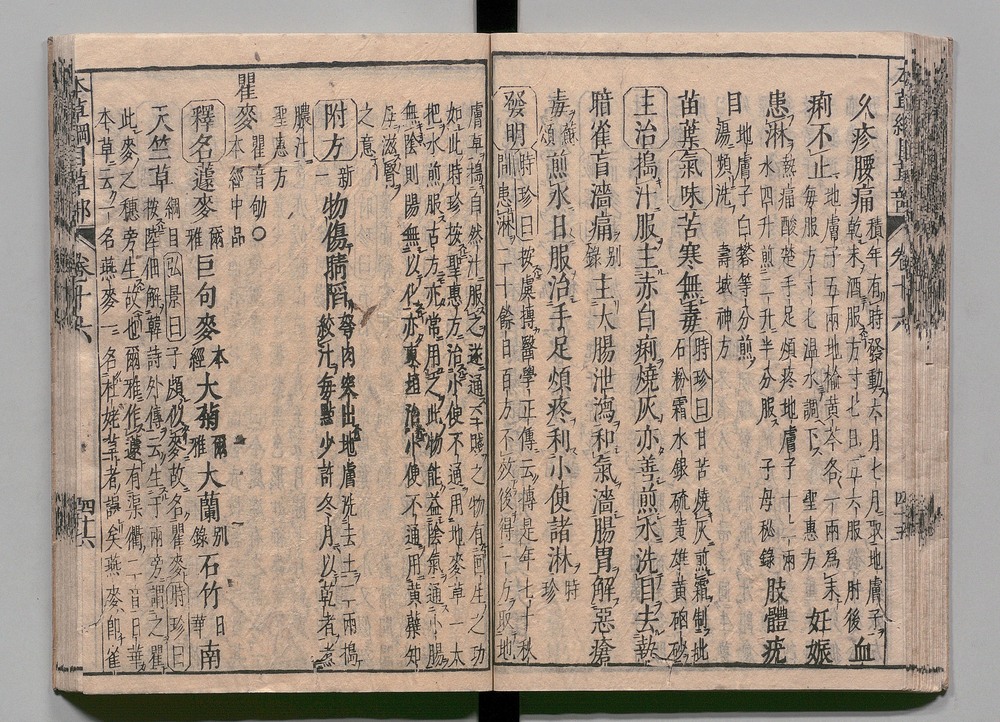 久疹腰痛積年有時發動六月七月取地膚子
乾末酒服方寸七日五六服肘後血
痢不止地膚子五兩地楡黄芩各一兩爲末
每服方寸七温水調下聖惠方妊娠
患淋熱痛酸楚手足煩疼地膚子十二兩
水四升煎二升半分服子母秘錄肢體疣
目地膚子白礬等分煎
湯頻洗壽域神方
苗葉氣味苦寒無毒時珍曰甘苦燒灰煎霜制砒
石粉霜水銀硫黄雄黄硇砂
主治搗汁服主赤白痢燒灰亦善煎水洗目去熱
暗雀盲濇痛别錄主大腸泄瀉和氣濇腸胃解惡瘡
毒蘇頌煎水日服治手足煩疼利小便諸淋時珍
發明時珍曰按虞摶醫學正傳云摶兄年七十秋
間患淋二十餘日百方不效後得一方取地
膚草搗自然汁服之遂通至賤之物有回生之功
如此時珍按聖惠方治小便不通用地麥草一大
把水煎服古方亦常用之此物能益陰氣通小腸
無陰則陽無以化亦東垣治小便不通用黄蘗知
母滋腎
之意
附方新一物傷睛陷弩肉突出地膚洗去土二兩搗
絞汁每點少許冬月以乾者煮
膿汁
聖惠方
瞿麥瞿音劬〇
本經中品
釋名蘧麥爾雅巨句麥本經大菊爾雅大蘭别錄石竹日華南
天竺草綱目弘景曰子頗似麥故名瞿麥時珍曰
按陸佃解韓詩外傳云生于兩旁謂之瞿
此麥之穗旁生故也爾雅作蘧有渠衢二音日華
本草云一名燕麥一名杜姥草者誤矣燕麥卽雀
本草綱目草部
卷十六
四十六
卷十六
四十五